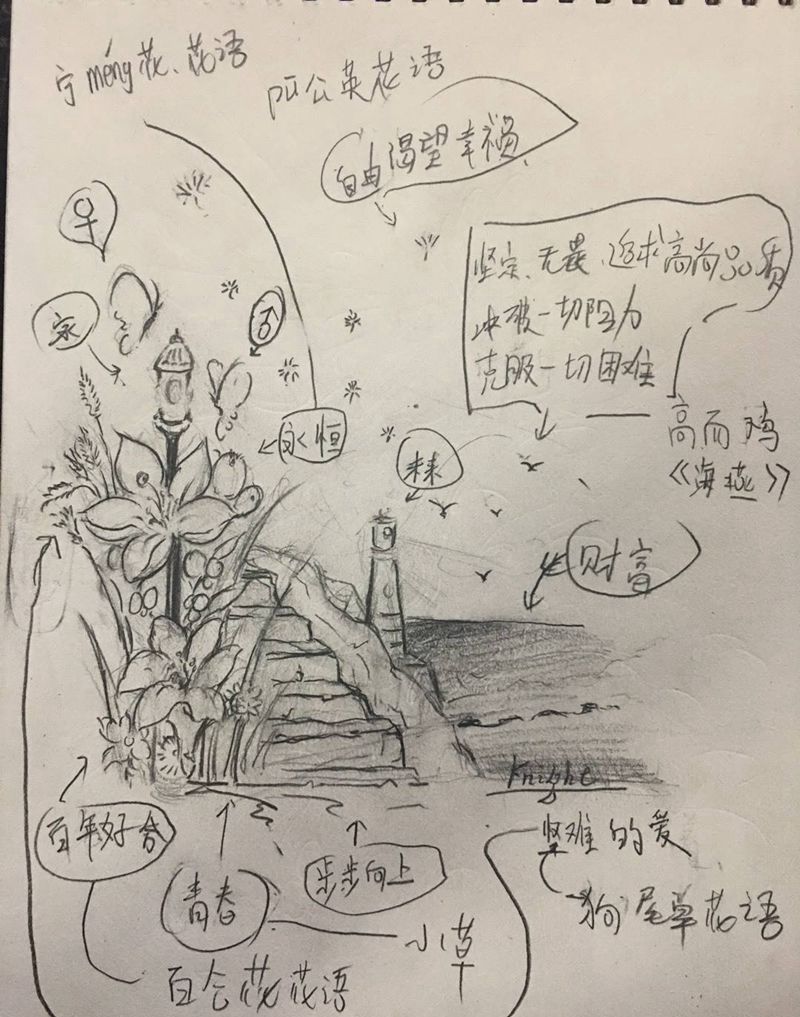 宁méng花、花语
pú公英花语
自由渴望幸福
♀
坚定、无畏、追求高尚品质
冲破一切阻力
克服一切困难
家
♂
高而鸡
《海燕》
永恒
未来
财富
Knight
百年好合
坚难的爱
步步向上
青春
狗尾草花语
小草
百合花花语